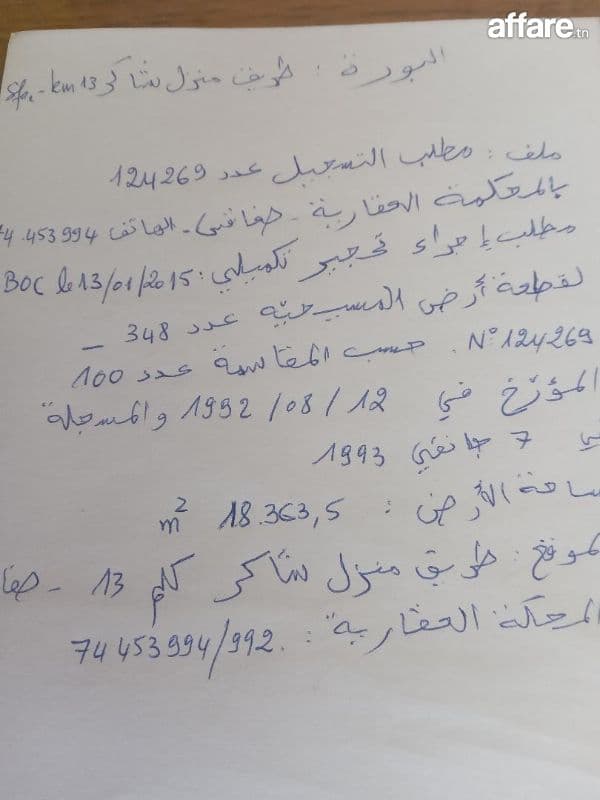 affare.tn
البورة : طريق منزل شاكر km 13 - Sfx
ملف : مطلب التسجيل عدد 124269
بالمحكمة العقارية - صفاقس - الهاتف 74.453994
مطلب إجراء تحجير تكميلي : BOC le 13/01/2015
لقطعة أرض المسيحية عدد 348 -
N° 124269. حسب المقاسمة عدد 100
المؤرخ في 12 / 08 / 1992 والمسجلة
في 7 جانفي 1993
ساحة الأرض : 18.363,5 m²
الموقع : طريق منزل شاكر كلم 13 - صفا
المحكمة العقارية : 74 453 994/992.